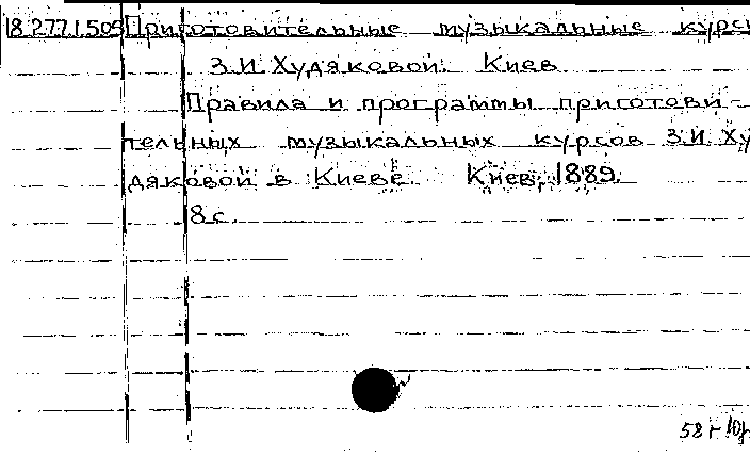 18.277.1.505 Приготовительные музыкальные курсы
З.И. Худяковой. Киев
Правила и программы приготови-
тельных музыкальных курсов З.И. Ху
дяковой в Киеве. Киев, 1889.
8 с.
58 г